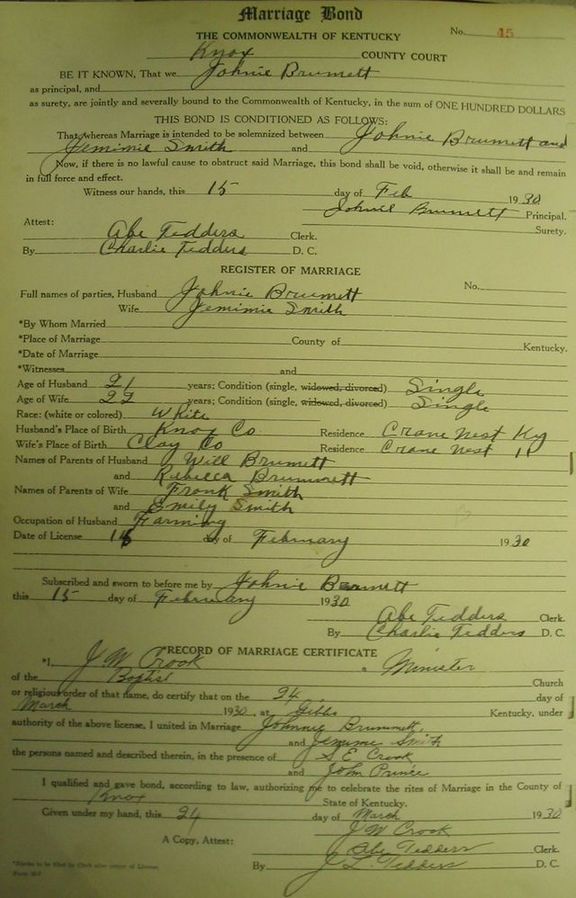 Marriage Bond
THE COMMONWEALTH OF KENTUCKY
No. 15
Knox COUNTY COURT
BE IT KNOWN, That we Johnie Brumett
as principal, and
as surety, are jointly and severally bound to the Commonwealth of Kentucky, in the sum of ONE HUNDRED DOLLARS
THIS BOND IS CONDITIONED AS FOLLOWS:
That whereas Marriage is intended to be solemnized between Johnie Brumett and
Jemimie Smith and
Now, if there is no lawful cause to obstruct said Marriage, this bond shall be void, otherwise it shall be and remain
in full force and effect.
Witness our hands, this 15 day of Feb 1930
Johnie Brumett Principal.
Surety.
Attest:
Abe Tedders Clerk.
By Charlie Tedders D. C.
REGISTER OF MARRIAGE
No.
Full names of parties, Husband Johnie Brumett
Wife Jemimie Smith
*By Whom Married
*Place of Marriage County of Kentucky.
*Date of Marriage
*Witnesses and
Age of Husband 21 years; Condition (single, widowed, divorced) Single
Age of Wife 22 years; Condition (single, widowed, divorced) Single
Race: (white or colored) White
Husband's Place of Birth Knox Co Residence Crane Nest Ky
Wife's Place of Birth Clay Co Residence Crane Nest "
Names of Parents of Husband Will Brumett
and Rebecca Brummett
Names of Parents of Wife Frank Smith
and Emily Smith
Occupation of Husband Farming
Date of License day of February 1930
Subscribed and sworn to before me by Johnie Brumett
this 15 day of February 1930
Abe Tedders Clerk.
By Charlie Tedders D. C.
RECORD OF MARRIAGE CERTIFICATE
*I, J W Crook a Minister
of the Baptist Church
or religious order of that name, do certify that on the 24 day of
March 1930, at Gibbs Kentucky, under
authority of the above license, I united in Marriage Johnnie Brummett
and Jemimie Smith
the persons named and described therein, in the presence of S E Crook
and John Prince
I qualified and gave bond, according to law, authorizing me to celebrate the rites of Marriage in the County of
Knox State of Kentucky.
Given under my hand, this 24 day of March 1930
J W Crook
A Copy, Attest: Abe Tedders Clerk.
By J. L. Tedders D. C.